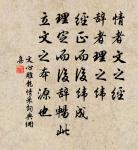 情者文之经
辞者理之纬
经正而后纬成
理定而后辞畅此
立文之本源也
文心雕龙情采词典网